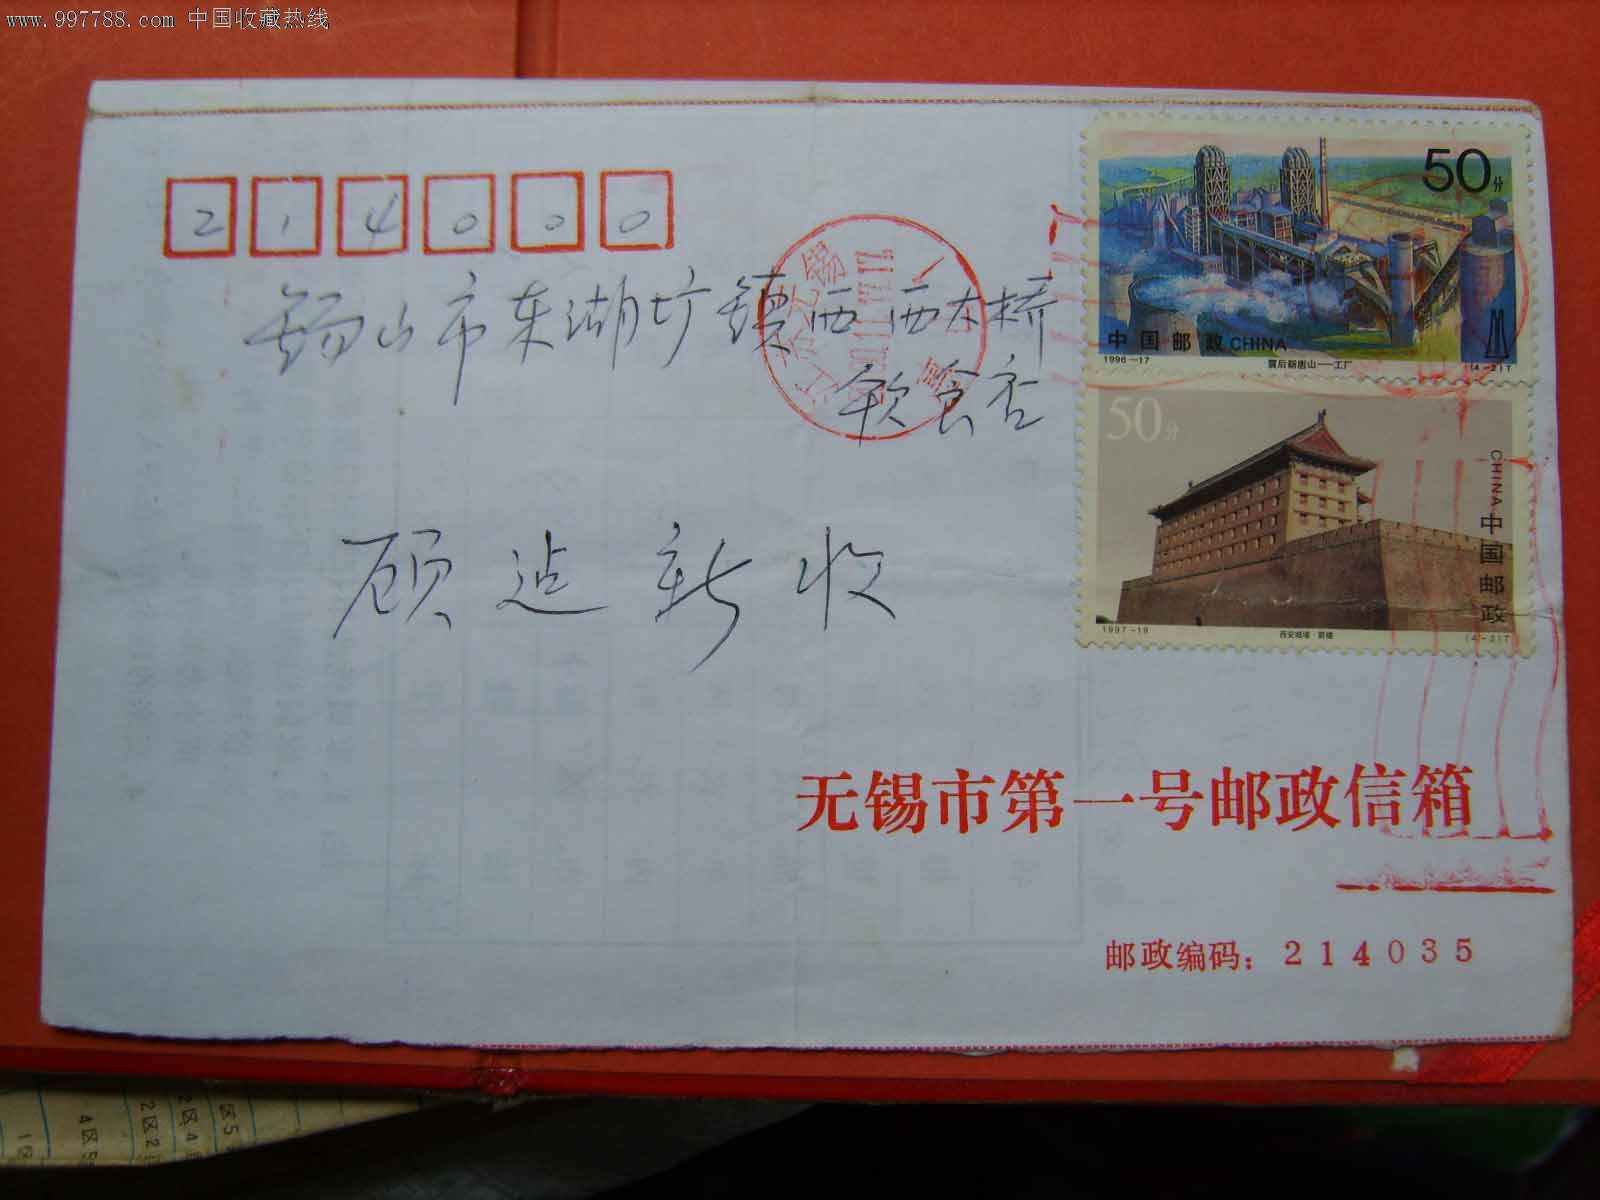 www.997788.com 中国收藏热线
214000
锡山市东湖坊镇西西木桥
饮食店
顾造新收
50分
中国邮政 CHINA
1996-17 震后新唐山——工厂 (4-2)T
50分
CHINA 中国邮政
1997-19 西安城墙·箭楼 (4-2)T
江苏无锡
无锡市第一号邮政信箱
邮政编码：214035